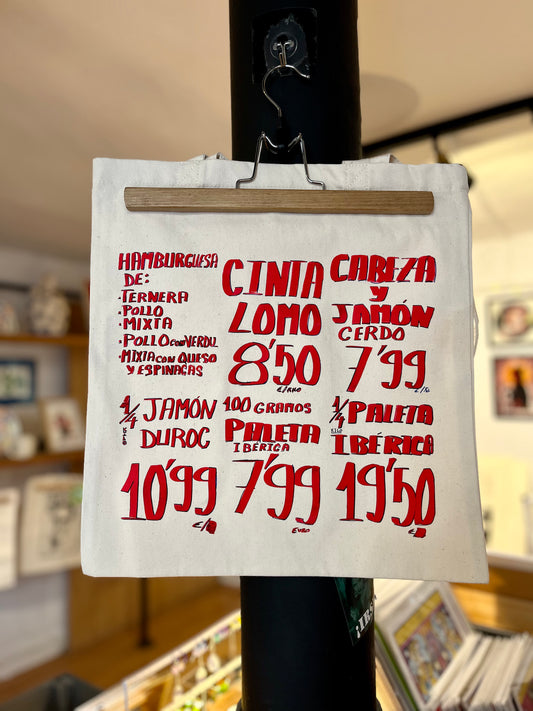 HAMBURGUESA
DE:
·TERNERA
·POLLO
·MIXTA
·POLLO CON VERDU.
·MIXTA CON QUESO
Y ESPINACAS
CINTA
LOMO
8'50
€/KILO
CABEZA
Y
JAMÓN
CERDO
7'99
€/KG
1/4 JAMÓN
KILO
DUROC
10'99
€/
100 GRAMOS
PALETA
IBÉRICA
7'99
EURO
1/4 PALETA
KILO
IBÉRICA
19'50